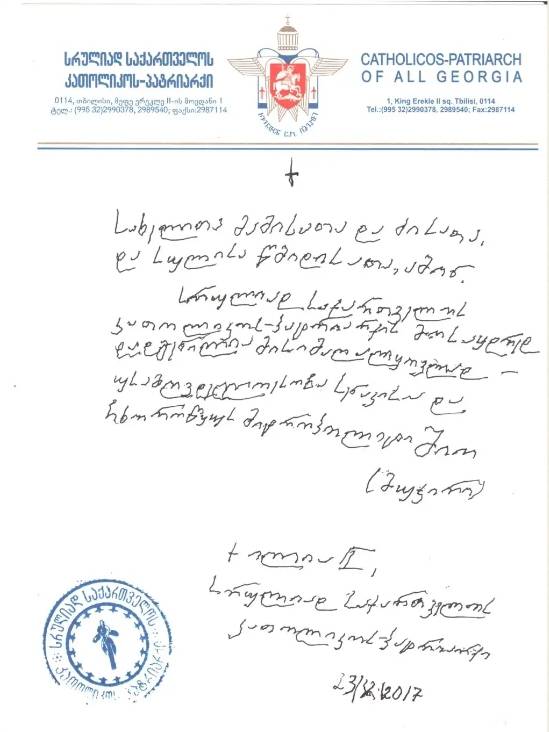 სრულიად საქართველოს
კათოლიკოს-პატრიარქი
0114, თბილისი, მეფე ერეკლე II-ის მოედანი 1
ტელ.: (995 32)2990378, 2989540; ფაქსი:2987114
CATHOLICOS-PATRIARCH
OF ALL GEORGIA
1, King Erekle II sq. Tbilisi, 0114
Tel.:(995 32)2990378, 2989540; Fax:2987114
სახელითა მამისათა და ძისათა,
და სულისა წმიდისათა, ამინ.
სრულიად საქართველოს
კათოლიკოს-პატრიარქის მოსაყდრედ
დადგენილია მისი მაღალყოვლად
უსამღვდელოესობა სენაკისა და
ჩხოროწყუს მიტროპოლიტი შიო
(მუჯირი)
+ ილია II,
სრულიად საქართველოს
კათოლიკოს-პატრიარქი
2017
სრულიად საქართველოს
კათოლიკოს-პატრიარქი